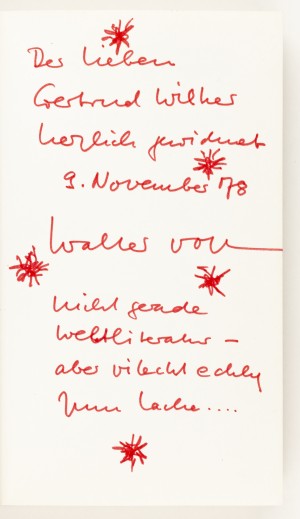 Der lieben
Gertrud Wilker
herzlich gewidmet
9. November '78
Walter Vogt
nicht gerade
Weltliteratur –
aber vilecht echly
zum Lache....